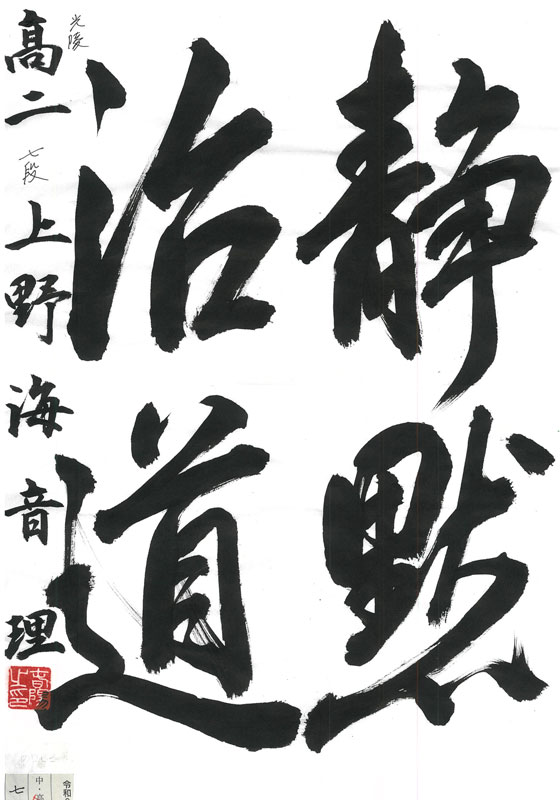 静黙
治道
光陵
高二 七段 上野海音理
令和
中・高
七